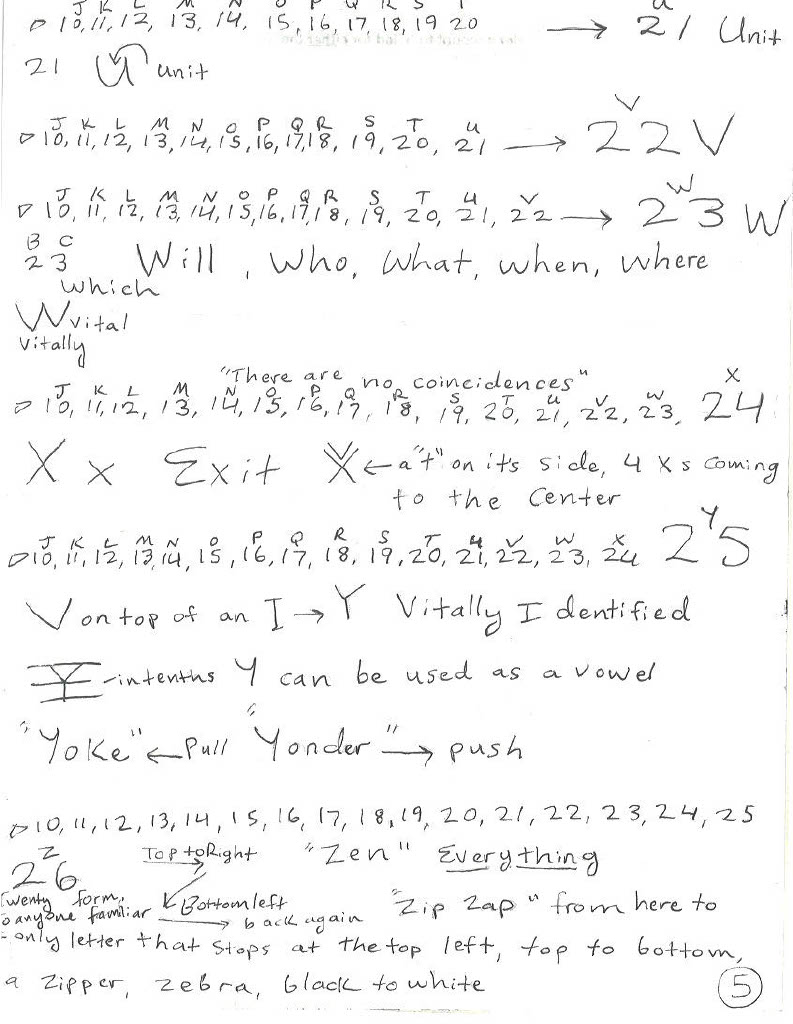 J K L M N O P Q R S T U
▷ 10, 11, 12, 13, 14, 15, 16, 17, 18, 19 20 → 21 Unit
21 U unit
J K L M N O P Q R S T U V
▷ 10, 11, 12, 13, 14, 15, 16, 17, 18, 19, 20, 21 → 22 V
J K L M N O P Q R S T U V W
▷ 10, 11, 12, 13, 14, 15, 16, 17, 18, 19, 20, 21, 22 → 23 W
B C
2 3 Will, Who, What, when, where
which
W vital
vitally
"There are no coincidences"
J K L M N O P Q R S T U V W X
▷ 10, 11, 12, 13, 14, 15, 16, 17, 18, 19, 20, 21, 22, 23, 24
X x Exit X ← a "t" on it's side, 4 Xs coming
to the center
J K L M N O P Q R S T U V W X Y
▷ 10, 11, 12, 13, 14, 15, 16, 17, 18, 19, 20, 21, 22, 23, 24 25
V on top of an I → Y Vitally I dentified
Y - intenths Y can be used as a vowel
"Yoke" ← Pull "Yonder" → push
▷ 10, 11, 12, 13, 14, 15, 16, 17, 18, 19, 20, 21, 22, 23, 24, 25
Z
26 Top to Right "Zen" Everything
form, Bottom left
anyone familiar → back again "Zip Zap" from here to
- only letter that stops at the top left, top to bottom,
a zipper, zebra, black to white
5